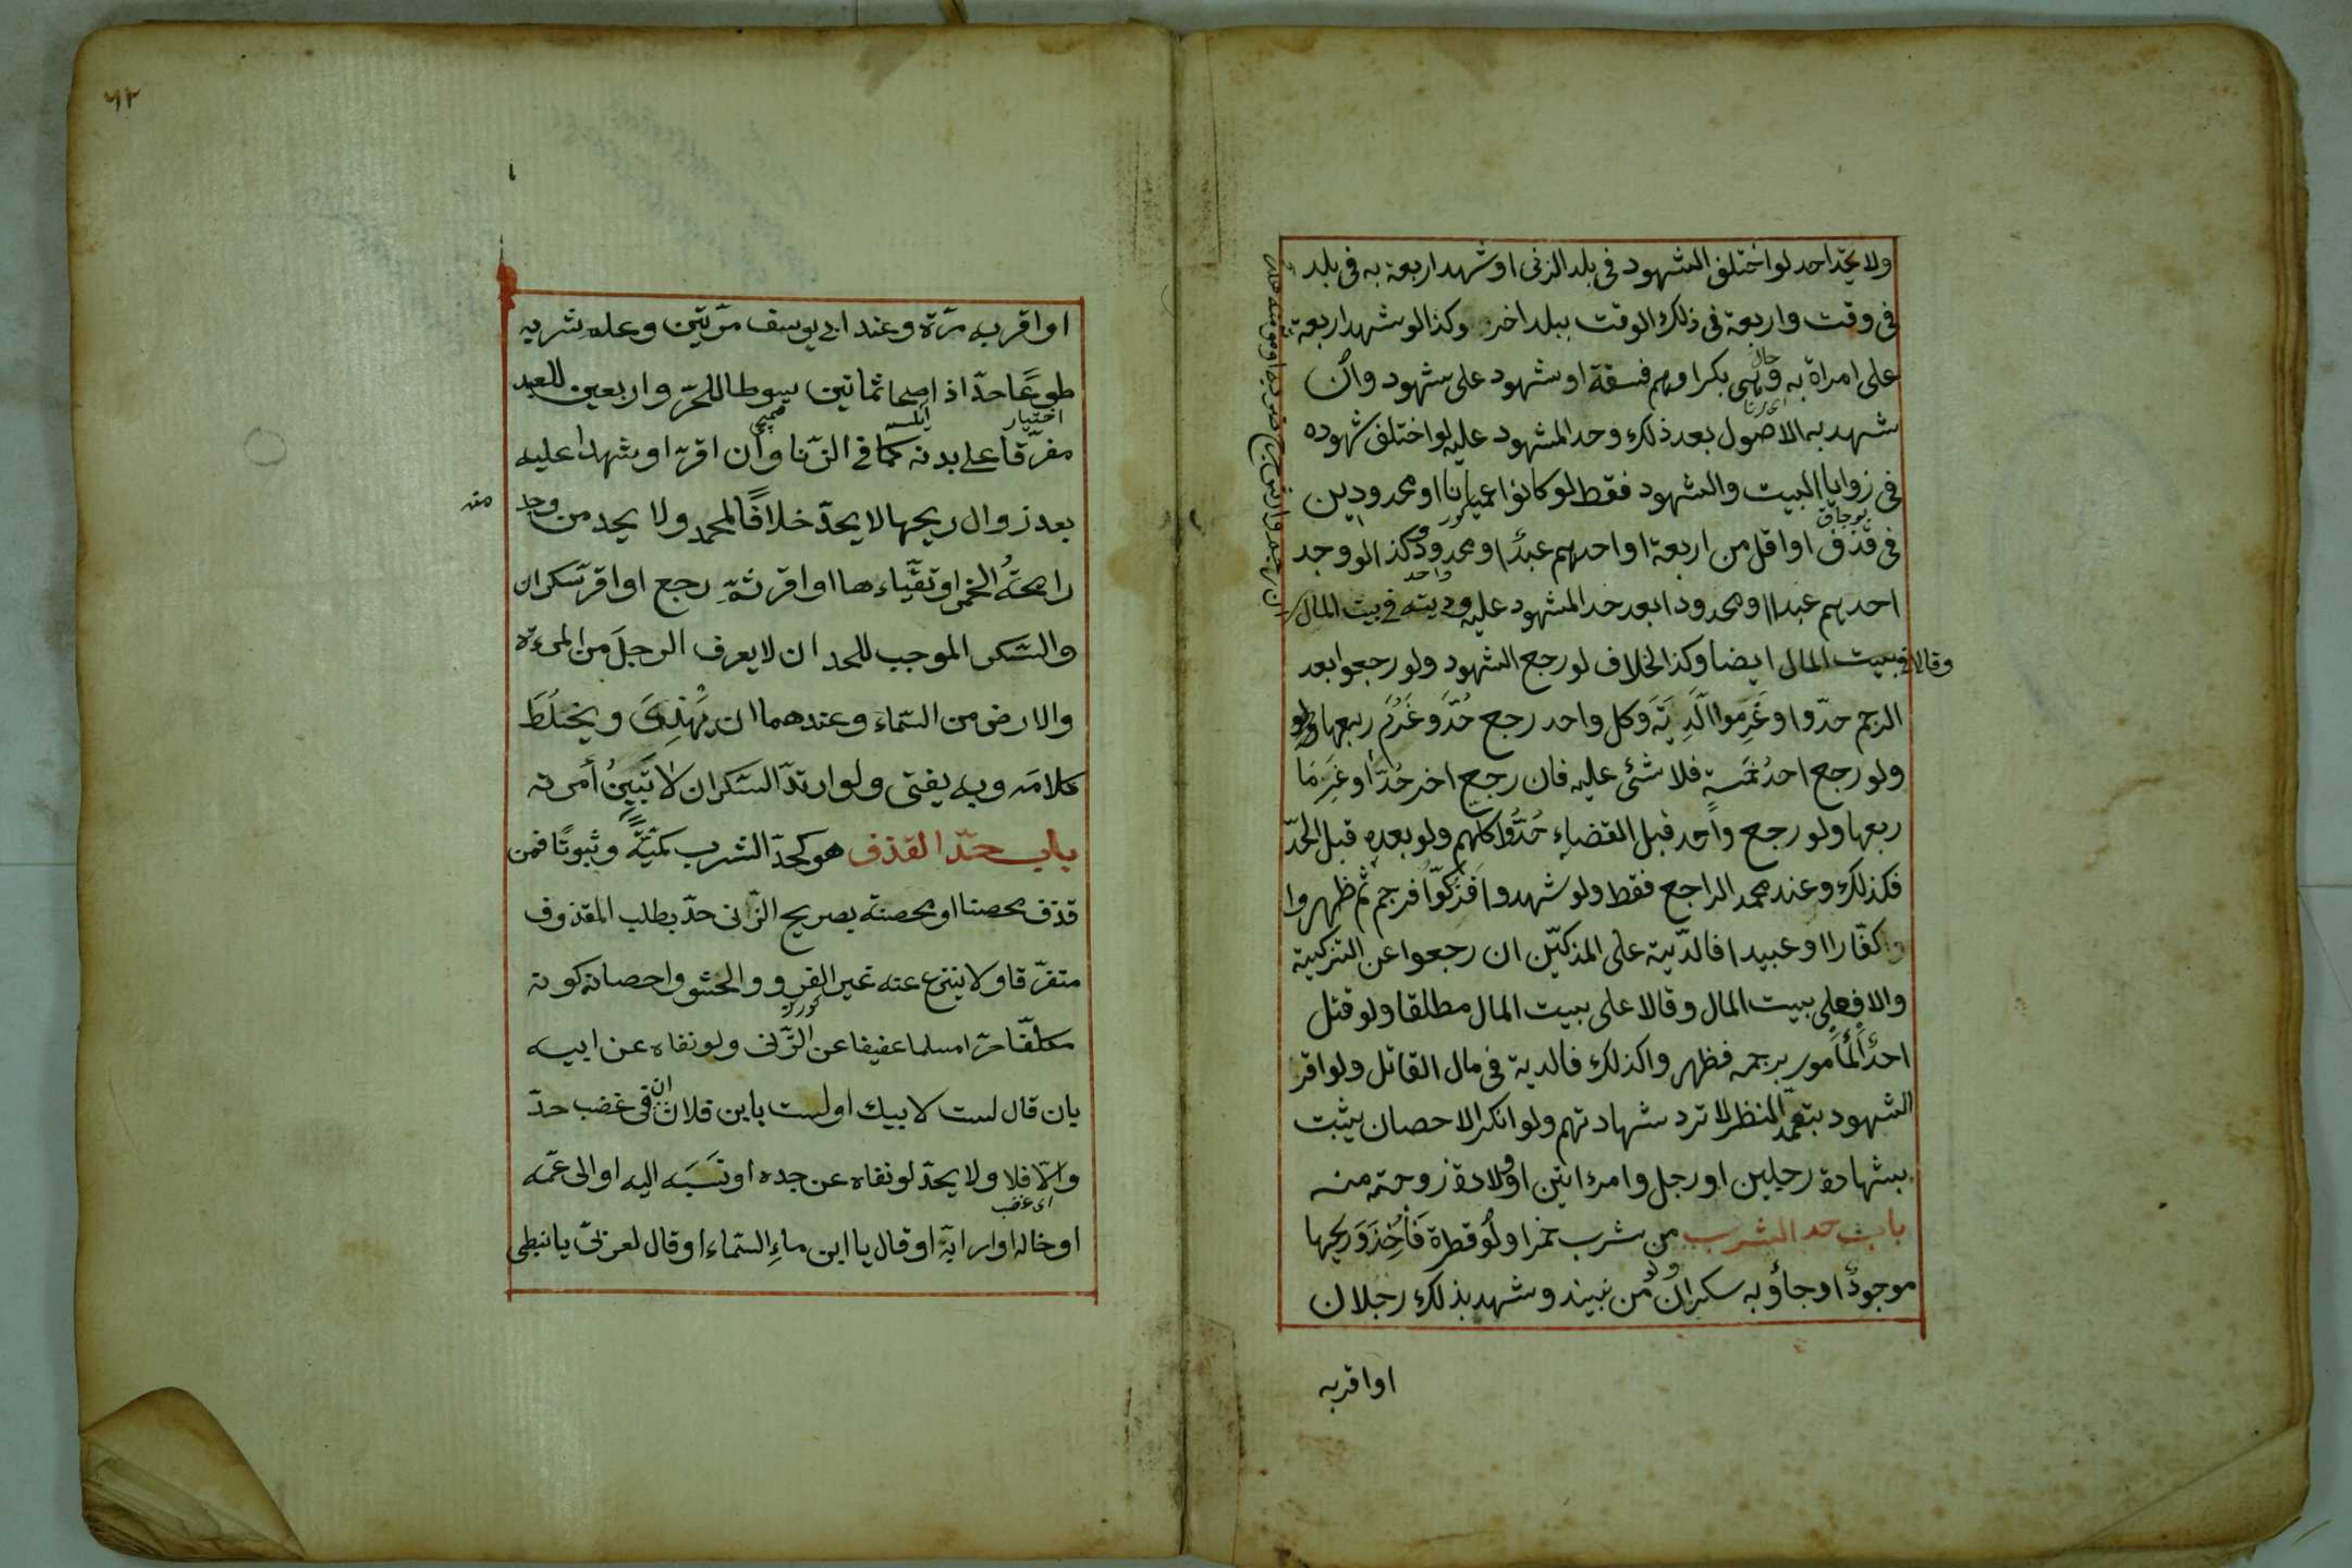 ولا يحدّ احد لو اختلف الشهود فى بلد الزنى او شهد اربعة به فى بلد
فى وقت واربعة فى ذلك الوقت ببلد اخر وكذا لو شهد اربعة
على امراة به وهى بكر او هم فسقة او شهود على شهود وان
شهد به الاصول بعد ذلك وحد المشهود عليه لو اختلف شهوده
فى زوايا البيت والشهود فقط لو كانوا عميانا او محدودين
فى قذف او اقل من اربعة او احدهم عبدًا او محدود وكذا لو وجد
احدهم عبدا او محدودا بعد حد المشهود عليه وديته فى بيت المال
وقالا فى بيت المال ايضا وكذا الخلاف لو رجع الشهود ولو رجعوا بعد
الرجم حدّوا وغَرِموا الَدِيَة وكل واحد رجع حُدَّ وغَرُمَ ربعها
ولو رجع احدُ خمسةٍ فلا شئ عليه فان رجع اخر حُدَّا وغَرِمَا
ربعها ولو رجع واحد قبل القضاءِ حُدُّوا كلهم ولو بعده قبل الحدّ
فكذلك وعند محمد الراجع فقط ولو شهدوا فَزكّوا فرجم ثم ظهروا
كفّارا او عبيدا فالدّية على المزكّين ان رجعوا عن التزكية
والا فعلى بيت المال وقالا على بيت المال مطلقا ولو قتل
احدٌ المأمور برجمه فظهروا كذلك فالدية فى مال القاتل ولو اقر
الشهود بتعمّد النظر لا ترد شهادتهم ولو انكر الاحصان يثبت
بشهادة رجلين او رجل وامرءاتين او ولادة زوجته منه
باب حد الشرب من شرب خمرا ولَو قطرة فَأُخِذَ وَريحها
موجودٌ او جاؤ به سكران ولو من نبيذ وشهد بذلك رجلان
او اقر به
٦٢
او اقر به مرّة وعند ابى يوسف مرّتين وعلم شربه
طوعًا حدّ اذا صحا ثمانين سوطا للحرّ واربعين للعبد
اختيار
مفرّقا على بدنه كما فى الزّنا وان اقرّ او شهدا عليه
بعد زوال ريحها لا يحدّ خلافًا لمحمد ولا يحد من وجد منه
رايحةُ الخمر او تقيّاءها او اقر ثمّ رجع او اقر سكران
والسّكر الموجب للحد ان لا يعرف الرجلَ من المرءة
والارض من السّماء وعندهما ان يهْذِىَ ويختلَطَ
كلامه وبه يفتى ولو ارتدّ السّكران لا تَبِينُ أمرءته
باب حدّ القذف هو كحدّ الشرب كمّيّةً وثبوتًا فمن
قذف محصنا او محصنة بصريح الزّنى حدّ بطلب المقذوف
متفرّقا ولا ينزع عنه غير الفرو والحشو واحصانه كونه
مكلّفًا حرّا مسلما عفيفا عن الزّنى ولو نفاه عن ابيه
بان قال لست لابيك او لست بابن فلان فى غضب حدّ
والّا فلا ولا يحدّ لو نفاه عن جده او نَسَبَه اليه او الى عمّه
اى غضب
او خاله او رابّه او قال يا ابن ماءِ السّماء او قال لعربىّ يا نبطى